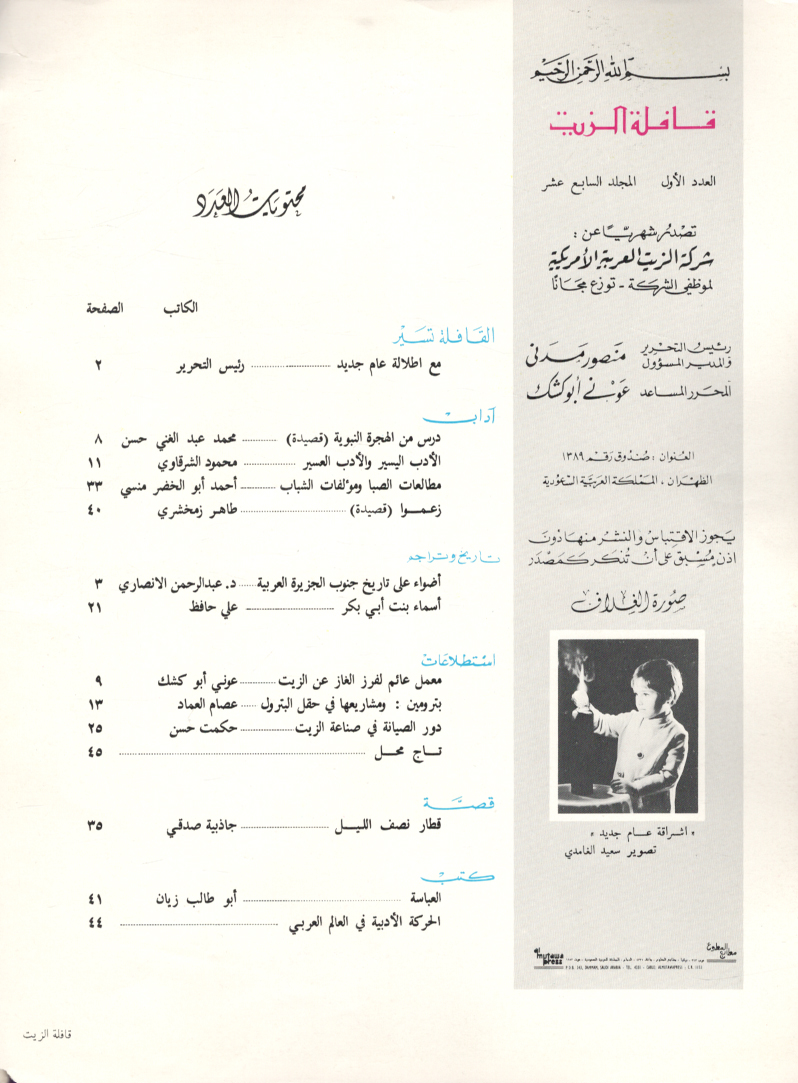 بسم الله الرحمن الرحيم
قافلة الزيت
العدد الأول المجلد السابع عشر
تصدر شهريًا عن :
شركة الزيت العربية الأمريكية
لموظفي الشركة - توزع مجانًا
رئيس التحرير والمدير المسؤول منصور مدني
المحرر المساعد عوني أبو كشك
العنوان : صندوق رقم ١٣٨٩
الظهران ، المملكة العربية السعودية
يجوز الاقتباس والنشر منها دون
اذن مسبق على أن تذكر كمصدر
صورة الغلاف
« اشراقة عام جديد »
تصوير سعيد الغامدي
مطابع المطوع
al mutawa press
P.O.B. 243, DAMMAM, SAUDI ARABIA
محتويات العدد
الكاتب الصفحة
القافلة تسير
مع اطلالة عام جديد ... رئيس التحرير ٢
آداب
درس من الهجرة النبوية (قصيدة) ... محمد عبد الغني حسن ٨
الأدب اليسير والأدب العسير ... محمود الشرقاوي ١١
مطالعات الصبا ومؤلفات الشباب ... أحمد أبو الخضر منسي ٣٣
زعموا (قصيدة) ... طاهر زمخشري ٤٠
تاريخ وتراجم
أضواء على تاريخ جنوب الجزيرة العربية ... د. عبدالرحمن الانصاري ٣
أسماء بنت أبي بكر ... علي حافظ ٢١
استطلاعات
معمل عائم لفرز الغاز عن الزيت ... عوني أبو كشك ٩
بترومين : ومشاريعها في حقل البترول ... عصام العماد ١٣
دور الصيانة في صناعة الزيت ... حكمت حسن ٢٥
تاج محل ... ٤٥
قصة
قطار نصف الليل ... جاذبية صدقي ٣٥
كتب
العباسة ... أبو طالب زيان ٤١
الحركة الأدبية في العالم العربي ... ٤٤
قافلة الزيت